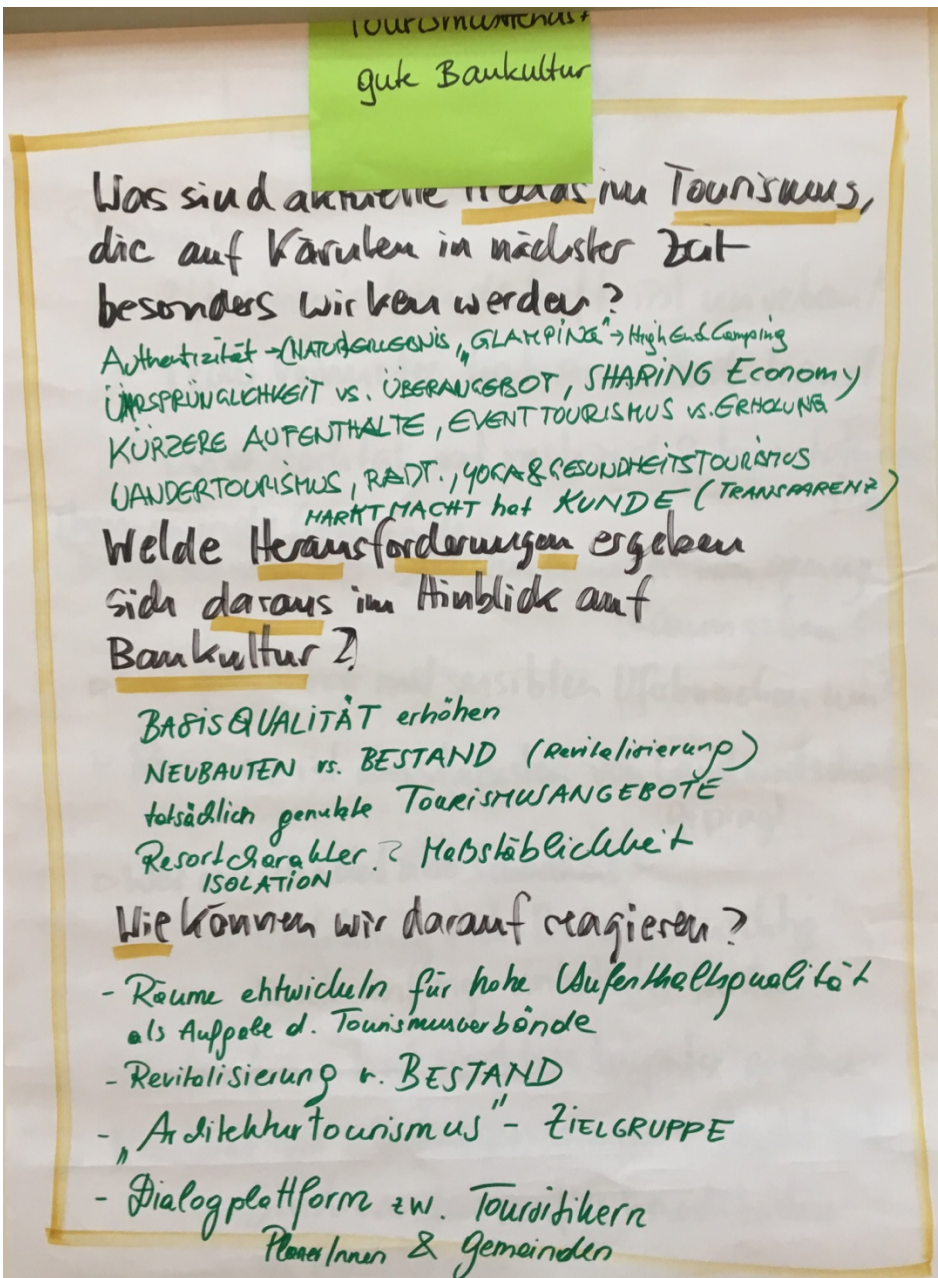 gute Baukultur
Was sind aktuelle Trends im Tourismus,
die auf Kärnten in nächster Zeit
besonders wirken werden?
Authentizität → (NATUR)ERLEBNIS „GLAMPING" → High End Camping
URSPRÜNGLICHKEIT vs. ÜBERANGEBOT, SHARING Economy
KÜRZERE AUFENTHALTE, EVENTTOURISMUS vs. ERHOLUNG
WANDERTOURISMUS, RADT., YOGA & GESUNDHEITSTOURISMUS
MARKTMACHT hat KUNDE (TRANSPARENZ)
Welche Herausforderungen ergeben
sich daraus im Hinblick auf
Baukultur?
BASISQUALITÄT erhöhen
NEUBAUTEN vs. BESTAND (Revitalisierung)
tatsächlich genutzte TOURISMUSANGEBOTE
Resortcharakter? Maßstäblichkeit
ISOLATION
Wie können wir darauf reagieren?
- Räume entwickeln für hohe Aufenthaltsqualität
als Aufgabe d. Tourismusverbände
- Revitalisierung v. BESTAND
- „Architekturtourismus" - ZIELGRUPPE
- Dialogplattform zw. Touristikern
PlanerInnen & Gemeinden